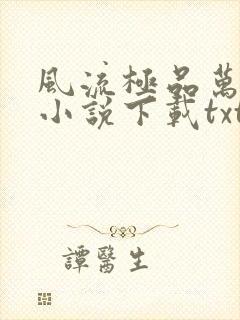 風流極品萬
小說下載txt
譚醫生